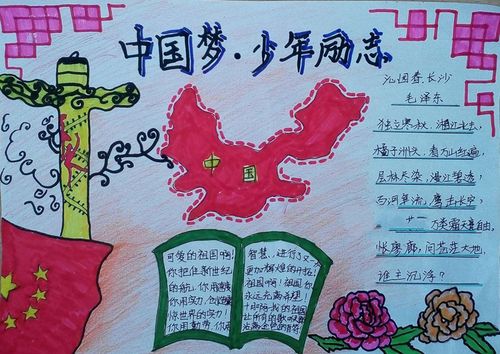 中国梦·少年励志
沁园春·长沙
毛泽东
独立寒秋,湘江北去,
橘子洲头,看万山红遍,
层林尽染,漫江碧透,
争流,鹰击长空,
万类霜天竞自由,
怅廖廓,问苍茫大地,
谁主沉浮?
中国
可爱的祖国啊!
你把住新世纪
的航,你用速度
你用实力,
惊世界的实力!
你用勤劳,你用
智慧,进行了又一
更加辉煌的开拓!
祖国啊!祖国你
永远充满希望!
我的祖国
让所有的歌